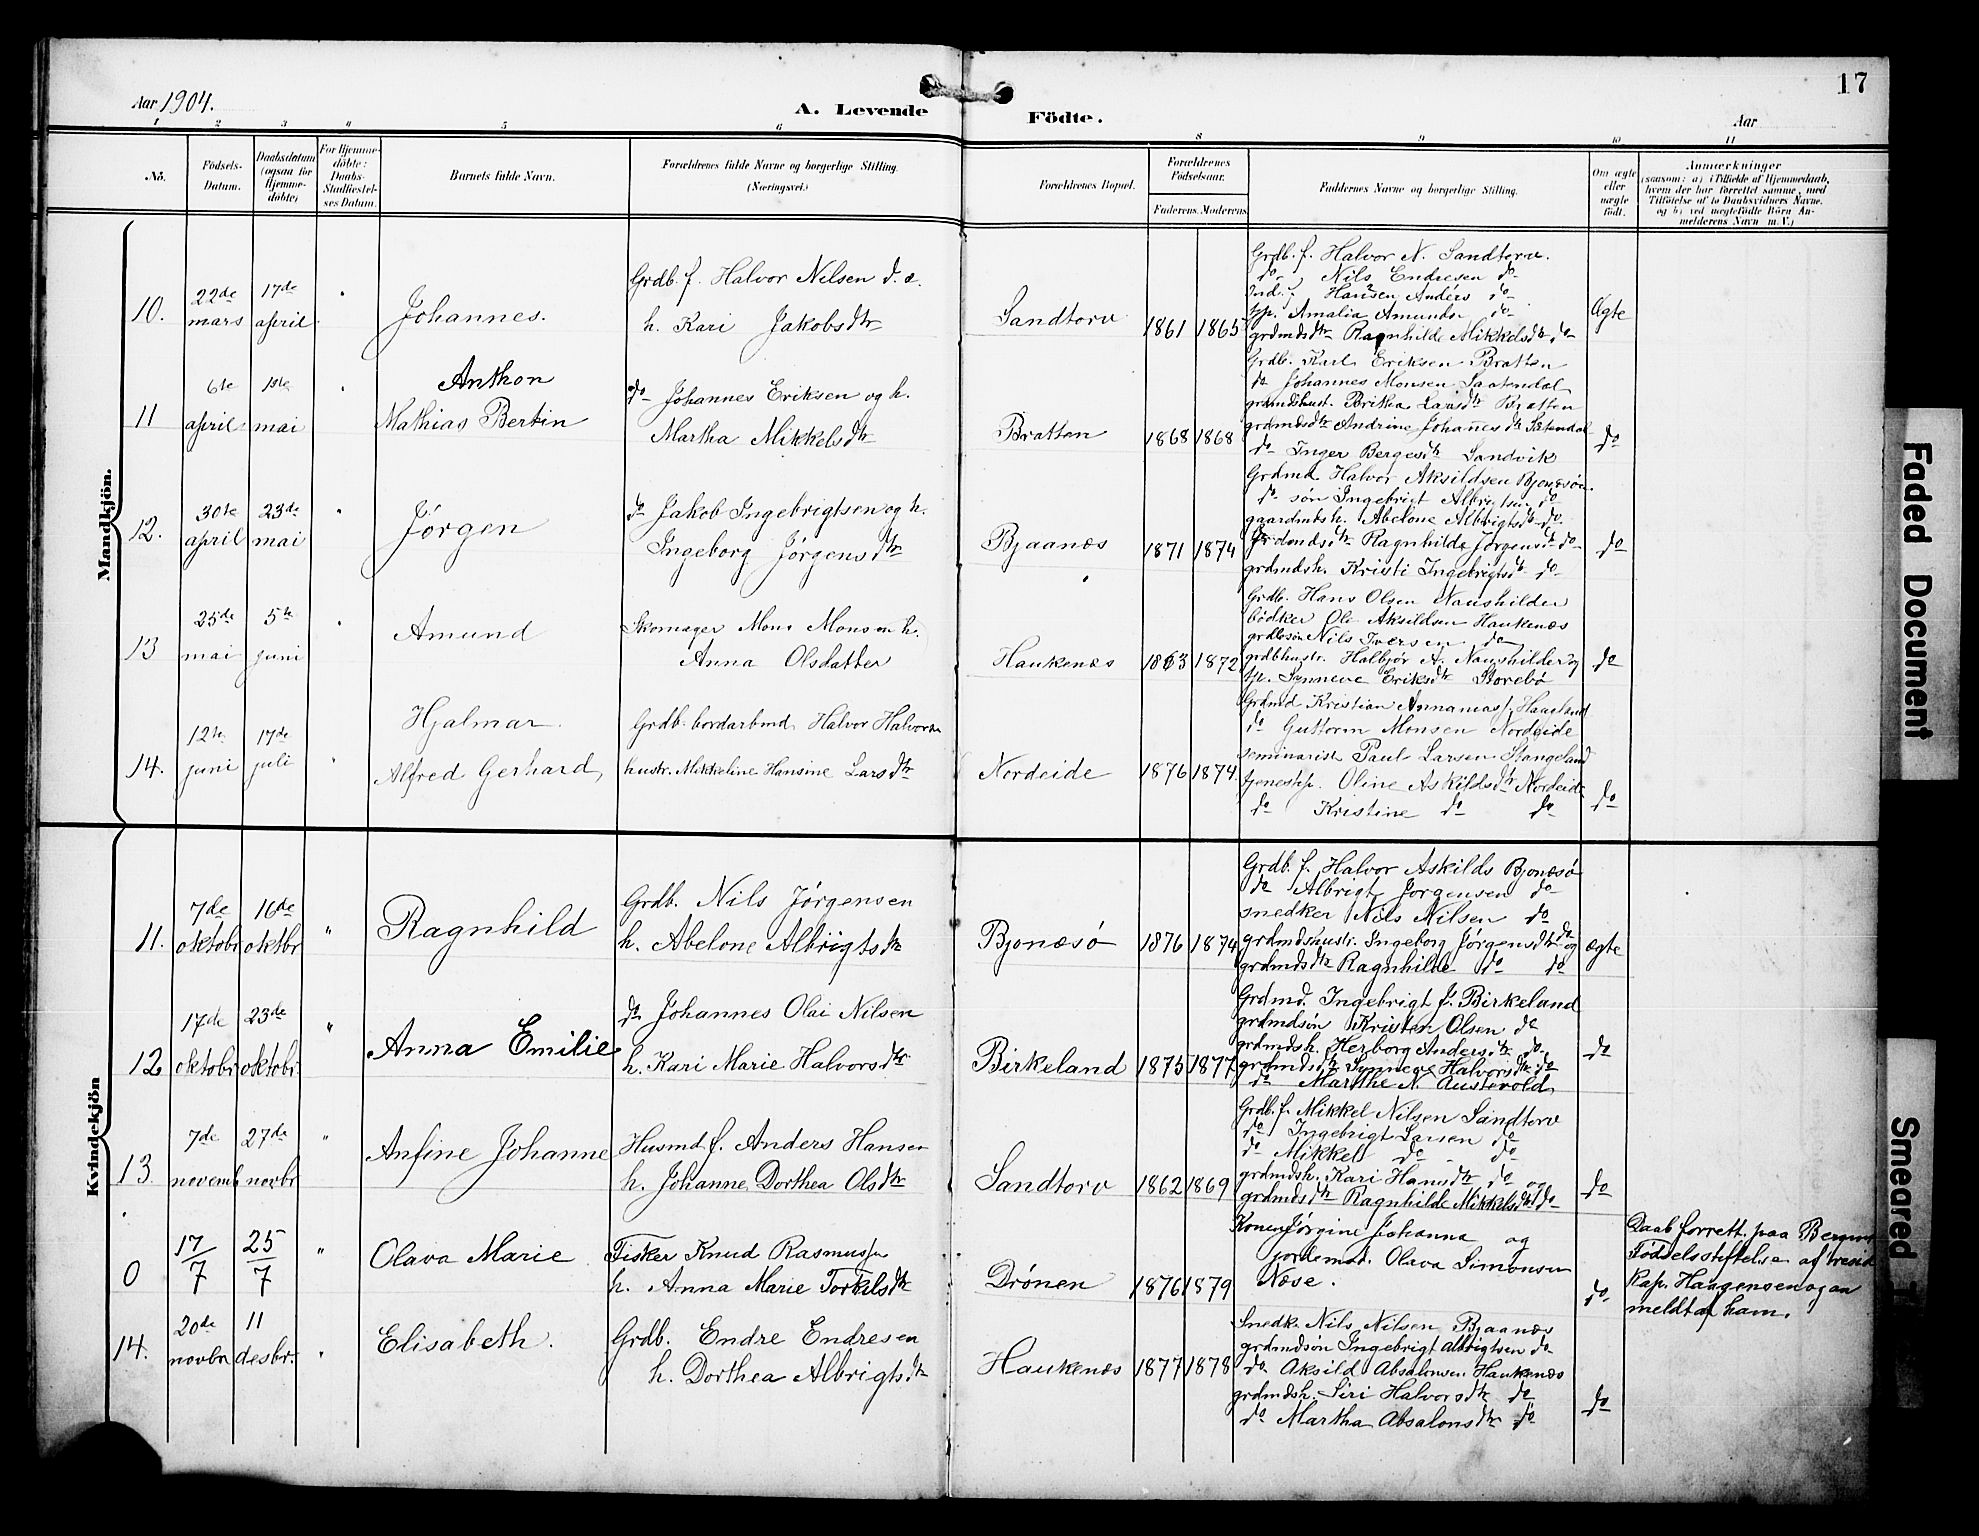 Aar 1904.
A. Levende
Födte.
Aar
17
1 2 3 4 5 6 8 9 10 11
No.
Födsels-
Datum.
Daabsdatum
(ogsaa for
Hjemme-
döbte)
For Hjemme-
döbte:
Daabs-
Stadfæstel-
ses Datum.
Barnets fulde Navn.
Forældrenes fulde Navne og borgerlige Stilling.
(Næringsvei.)
Forældrenes Bopæl.
Forældrenes
Födselsaar.
Faderens. Moderens.
Faddernes Navne og borgerlige Stilling.
Om ægte
eller
uægte
födt.
Anmærkninger
(saasom: a) i Tilfælde af Hjemmedaab,
hvem der har forrettet samme, med
Tilföielse af to Daabsvidners Navne.
og b) ved uægtefödte Börn An-
melderens Navn m. V.)
Mandkjön.
10.
22de
mars
17de
april
Johannes.
Grdb. f. Halvor Nilsen
h. Kari Jakobsdtr
Sandtorv
1861 1865
Grdb. f. Halvor N. Sandtorv.
do Nils Endresen do
Hansen Anders do
tp. Amalia Amundsr do
grdmdsdtr Ragnhilde Mikkelsdtr do
Ægte
11
6te
april
1ste
mai
Anthon
Mathias Bertin
do Johannes Eriksen og h.
Martha Mikkelsdtr
Bratten
1868 1868
Grdb. Karl Eriksen Bratten
do Johannes Monsen Saatendal
grdmdshust. Britha Larsdtr Bratten
grdmdsdtr Andrine Johannesdtr Sætendal
do Inger Bergesdtr Sandvik
do
12.
30te
april
23de
mai
Jørgen
do Jakob Ingebrigtsen og h.
Ingeborg Jørgensdtr
Bjaanæs
1871 1874
Grdmd Halvor Aksildsen Bjonesøn
do søn Ingebrigt Albrigtsen do
gaardmdsh. Abelone Albrigtsdtr do.
Grdmdsdtr Ragnhilde Jørgensdtr do
grdmdsh. Kristi Ingebrigtsdtr do
do
13
25de
mai
5te
juni
Amund
Skomager Mons Monsen h.
Anna Olsdatter
Haukenæs
1863 1872
Grdb. Hans Olsen Naushilder
bødker Ole Aksildsen Haukenæs
grdbsøn Nils Iversen do
grdbhustr. Halbjør A. Naushilder og
tp. Synneve Eriksdtr Storebø
do
14.
12te
juni
17de
juli
Hjalmar
Alfred Gerhard,
Grdb. bordarbmd Halvor Halvorsn
hustr. Mikkeline Hansine Larsdtr
Nordeide
1876 1874
Grdmd Kristian Annanias f. Haaland
do Guttorm Monsen Nordeide
seminarist Paul Larsen Stangeland
tjenestep. Oline Askildsdtr Nordeide
do Kristine do do
do
Kvindekjön
11.
7de
oktobr
16de
oktbr
"
Ragnhild
Grdb. Nils Jørgensen
h. Abelone Albrigtsdtr
Bjonæsø
1876 1874
Grdb. f. Halvor Askilds Bjonæsø
do Albrigt Jørgensen do
snedker Nils Nilsen do
grdmdshustr. Ingeborg Jørgensdtr do og
grdmdsdtr Ragnhilde do do
ægte
12
17de
oktobr
23de
oktobr.
"
Anna Emilie
do Johannes Olai Nilsen
h. Kari Marie Halvorsdtr
Birkeland
1875 1877
Grdmd. Ingebrigt J. Birkeland
grdmdsøn Kristen Olsen do
grdmdsh. Herborg Andersdtr do
grdmdsdtr Synneve Halvorsdtr do
do Marthe N. Austevold
do
13.
7de
novemb
27de
novbr
"
Anfine Johanne
Husmd f. Anders Hansen
h. Johanne Dorthea Olsdtr
Sandtorv
1862 1869
Grdb. f. Mikkel Nilsen Sandtorv
do Ingebrigt Larsen do
do Mikkel do do
grdmdsh. Kari Hansdtr do og
grdmdsdtr Ragnhilde Mikkelsdtr do
do
0
17/7
25/7
"
Olava Marie
Fisker Knud Rasmussen
h. Anna Marie Torkelsdtr
Drönen
1876 1879
Konen Jørgine Johanna og
jordemod. Olava Simonsen
Næse.
do.
Daab forrett. paa Bergens
Fødselsstiftelse af resid
Kap. Haagensen og an
meldt af ham.
14.
20de
novbr
11
desbr.
"
Elisabeth.
Grdb. Endre Endresen
h. Dorthea Albrigtsdtr
Haukenæs
1877 1878
Snedk. Nils Nilsen Bjaanæs
grdmdsøn Ingebrigt Albrigtsen do
do Aksild Absalonsen Haukenæs
grdmdsh. Siri Halvorsdtr do
do Martha Absalonsdtr do
do
Faded Document
Smeared